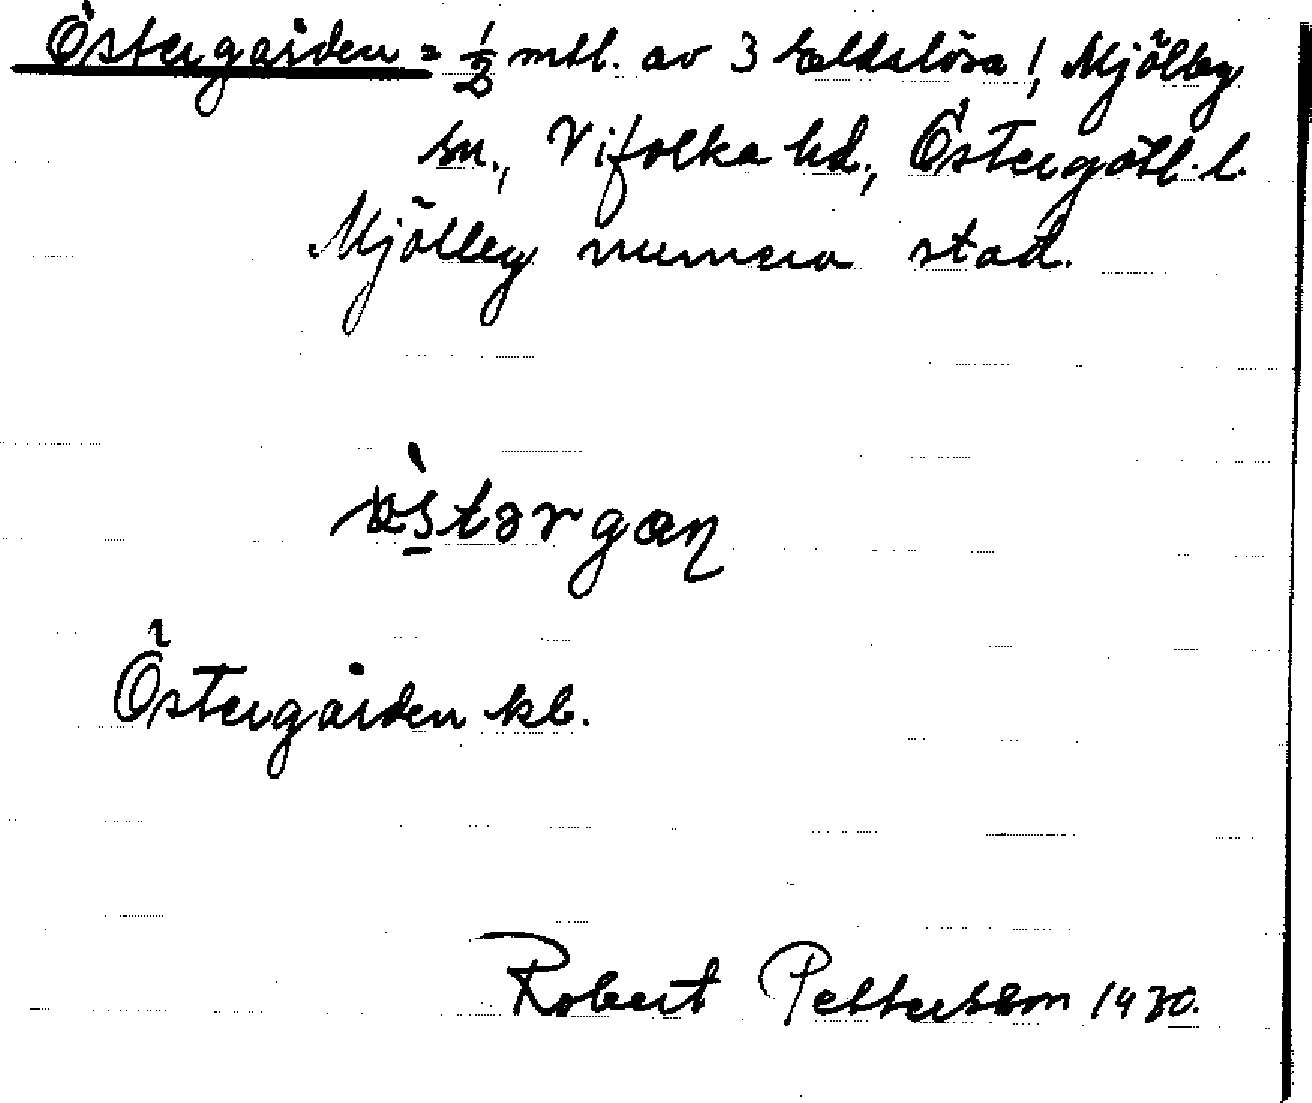 Östergården = 1/2 mtl. av 3 Eldslösa!, Mjölby
sn., Vifolka hd., Östergötl. l.
Mjölby numera stad.
östərgaɳ
Östergården kb.
Robert Pettersson 1930.